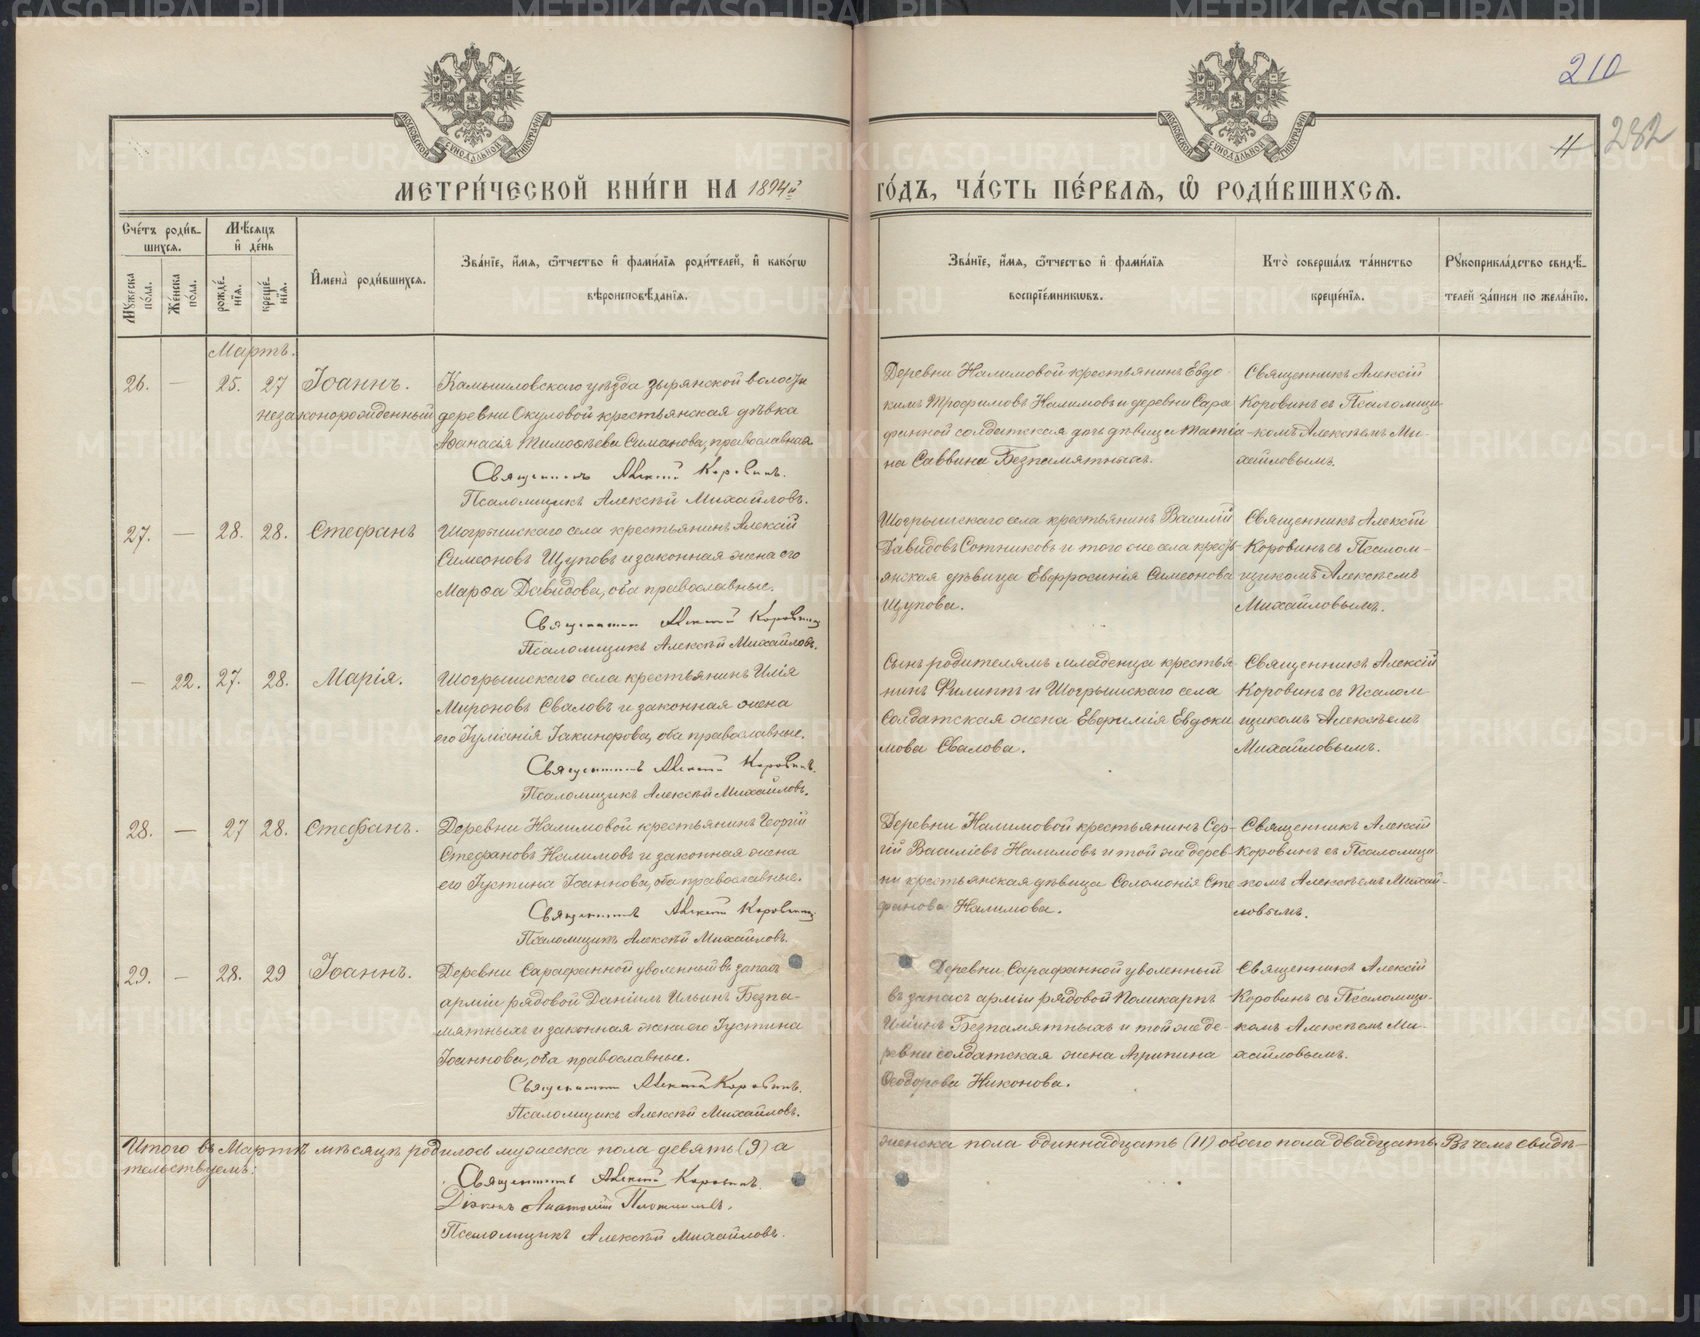 210
282
11
МОСКОВСКОЙ СѴНОДАЛЬНОЙ ТИПОГРАФІИ
МОСКОВСКОЙ СѴНОДАЛЬНОЙ ТИПОГРАФІИ
МЕТРИ́ЧЕСКОЙ КНИ́ГИ НА 1894й
ГО́ДЪ, ЧА́СТЬ ПЕ́РВАѦ, Ѡ РОДИ́ВШИХСѦ.
Сче́тъ роди́в-
шихся.
Мѣсяцъ
и де́нь
Мꙋжеска по́ла.
Же́нска по́ла.
рожде́-
нїя.
креще́-
нїя.
Имена̀ роди́вшихся.
Зва́нїе, и́мя, ѻ́тчество и фами́лїя роди́телей, и како́гѡ
вѣроисповѣ́данїя.
Зва́нїе, и́мя, ѻ́тчество и фами́лїя
воспрїе́мникѡвъ.
Кто̀ соверша́лъ та́инство
креще́нїя.
Рꙋкоприкла́дство свидѣ́-
телей за́писи по жела́нїю.
Мартъ.
26. — 25. 27 Іоаннъ.
незаконорожденный
Камышловскаго уѣзда Зырянской волости
деревни Окуловой крестьянская дѣвка
Аѳанасія Тимоѳѣева Симанова, православная
Священникъ Алексій Коровинъ.
Псаломщикъ Алексѣй Михайловъ.
Деревни Налимовой крестьянинъ Евдо-
кимъ Трофимовъ Налимовъ и деревни Сара
фанной солдатская дочь дѣвица Татіа-
на Саввина Безпамятныхъ.
Священникъ Алексій
Коровинъ съ Псаломщи-
комъ Алексѣемъ Ми-
хайловымъ.
27. — 28. 28. Стефанъ
Шогрышскаго села крестьянинъ Алексій
Симеоновъ Щуповъ и законная жена его
Марѳа Давидова, оба православные.
Священникъ Алексій Коровинъ
Псаломщикъ Алексѣй Михайловъ.
Шогрышскаго села крестьянинъ Василій
Давидовъ Сотниковъ и того же села кресть-
янская дѣвица Евфросинія Симеонова
Щупова.
Священникъ Алексій
Коровинъ съ Псалом-
щикомъ Алексѣемъ
Михайловымъ.
— 22. 27. 28. Марія.
Шогрышскаго села крестьянинъ Илія
Мироновъ Сваловъ и законная жена
его Іуліанія Іакинфова, оба православные.
Священникъ Алексій Коровинъ.
Псаломщикъ Алексѣй Михайловъ.
Сынъ родителямъ младенца крестья-
нинъ Филиппъ и Шогрышскаго села
Солдатская жена Евфимія Евдоки
мова Свалова.
Священникъ Алексій
Коровинъ съ Псалом-
щикомъ Алексѣемъ
Михайловымъ.
28. — 27 28. Стефанъ.
Деревни Налимовой крестьянинъ Георгій
Стефановъ Налимовъ и законная жена
его Іустина Іоаннова, оба православные.
Священникъ Алексій Коровинъ
Псаломщикъ Алексѣй Михайловъ.
Деревни Налимовой крестьянинъ Сер-
гій Василіевъ Налимовъ и той же дерев-
ни крестьянская дѣвица Соломонія Сте
фанова Налимова.
Священникъ Алексій
Коровинъ съ Псаломщи-
комъ Алексѣемъ Михай-
ловымъ.
29. — 28. 29 Іоаннъ.
Деревни Сарафанной уволенный въ запасъ
арміи рядовой Даніилъ Ильинъ Безпа-
мятныхъ и законная жена его Іустина
Іоаннова, оба православные.
Священникъ Алексій Коровинъ.
Псаломщикъ Алексѣй Михайловъ.
Деревни Сарафанной уволенный
въ запасъ арміи рядовой Поликарпъ
Иліинъ Безпамятныхъ и той же де-
ревни солдатская жена Агрипина
Ѳеодорова Никонова.
Священникъ Алексій
Коровинъ съ Псаломщи-
комъ Алексѣемъ Ми-
хайловымъ.
Итого въ Мартѣ мѣсяцѣ родилось мужеска пола девять (9) а женска пола одиннадцать (11) обоего пола двадцать. Въ чемъ свидѣ-
тельствуемъ:
Священникъ Алексій Коровинъ.
Діаконъ Анатолій Плотниковъ.
Псаломщикъ Алексѣй Михайловъ.
METRIKI.GASO-URAL.RU